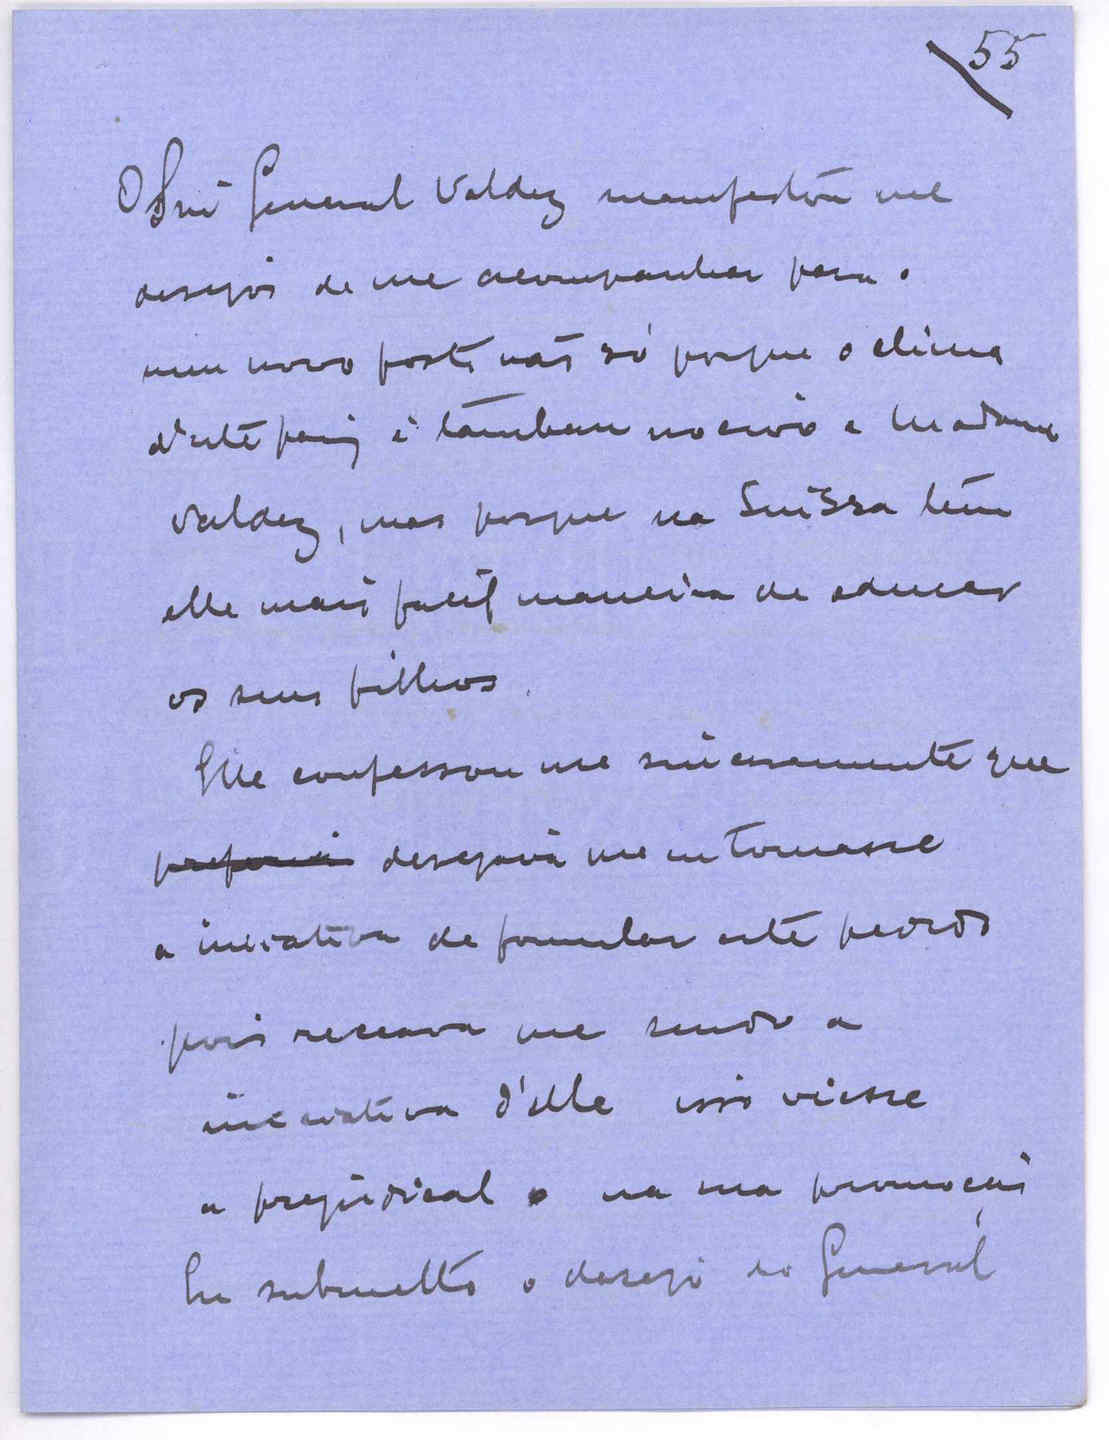 55
O Snr General Valdez manifestou me
desejos de me acompanhar para o
meu novo posto não só porque o clima
d'este paiz é tambem nocivo a Madame
Valdez, mas porque na Suissa tem
elle mais facil maneira de educar
os seus filhos.
Elle confessou me sinceramente que
preferia desejava que eu tomasse
a iniciativa de formular este pedido
pois receava que sendo a
iniciativa d'elle isso viesse
a prejudical o na sua promoção
Eu submetto o desejo do General